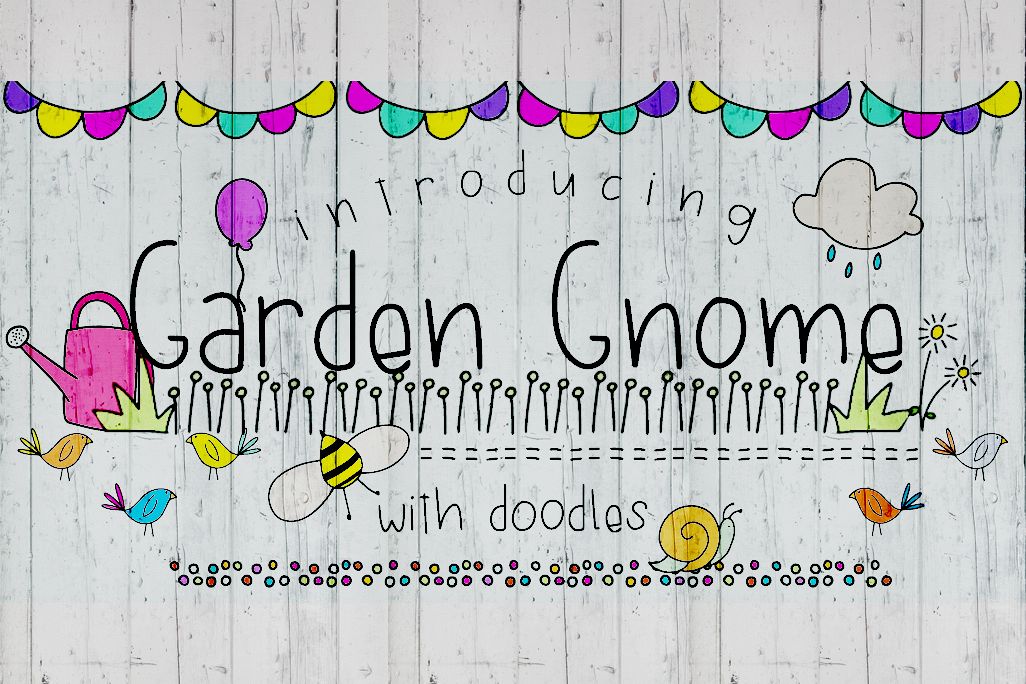 introducing
Garden Gnome
with doodles